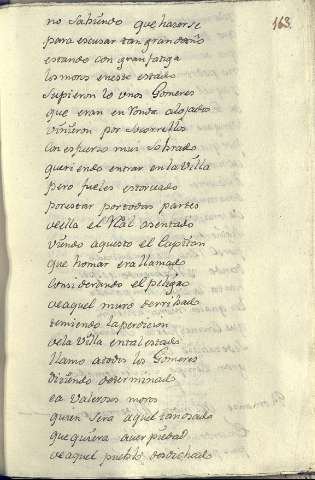 163.
no sabiendo que hazerse
para escusar tan gran daño
estando con gran fatiga
los moros eneste estado
supieron lo unos Gomeres
que eran en Ronda alojados
vinieron por socorrellos
con esfuerzo muy sobrado
queriendo entrar en la Villa
pero fueles estorvado
por estar por todas partes
de ella el Real asentado
viendo aquesto el Capitan
que homar era llamado
considerando el peligro
de aquel muro derribado
temiendo la perdicion
de la Villa en tal estado
llamo a todos los Gomeres
diziendo determinado
ea valerosos moros
quien sera aquel tan osado
que quiera aver piedad
de aquel pueblo desdichado